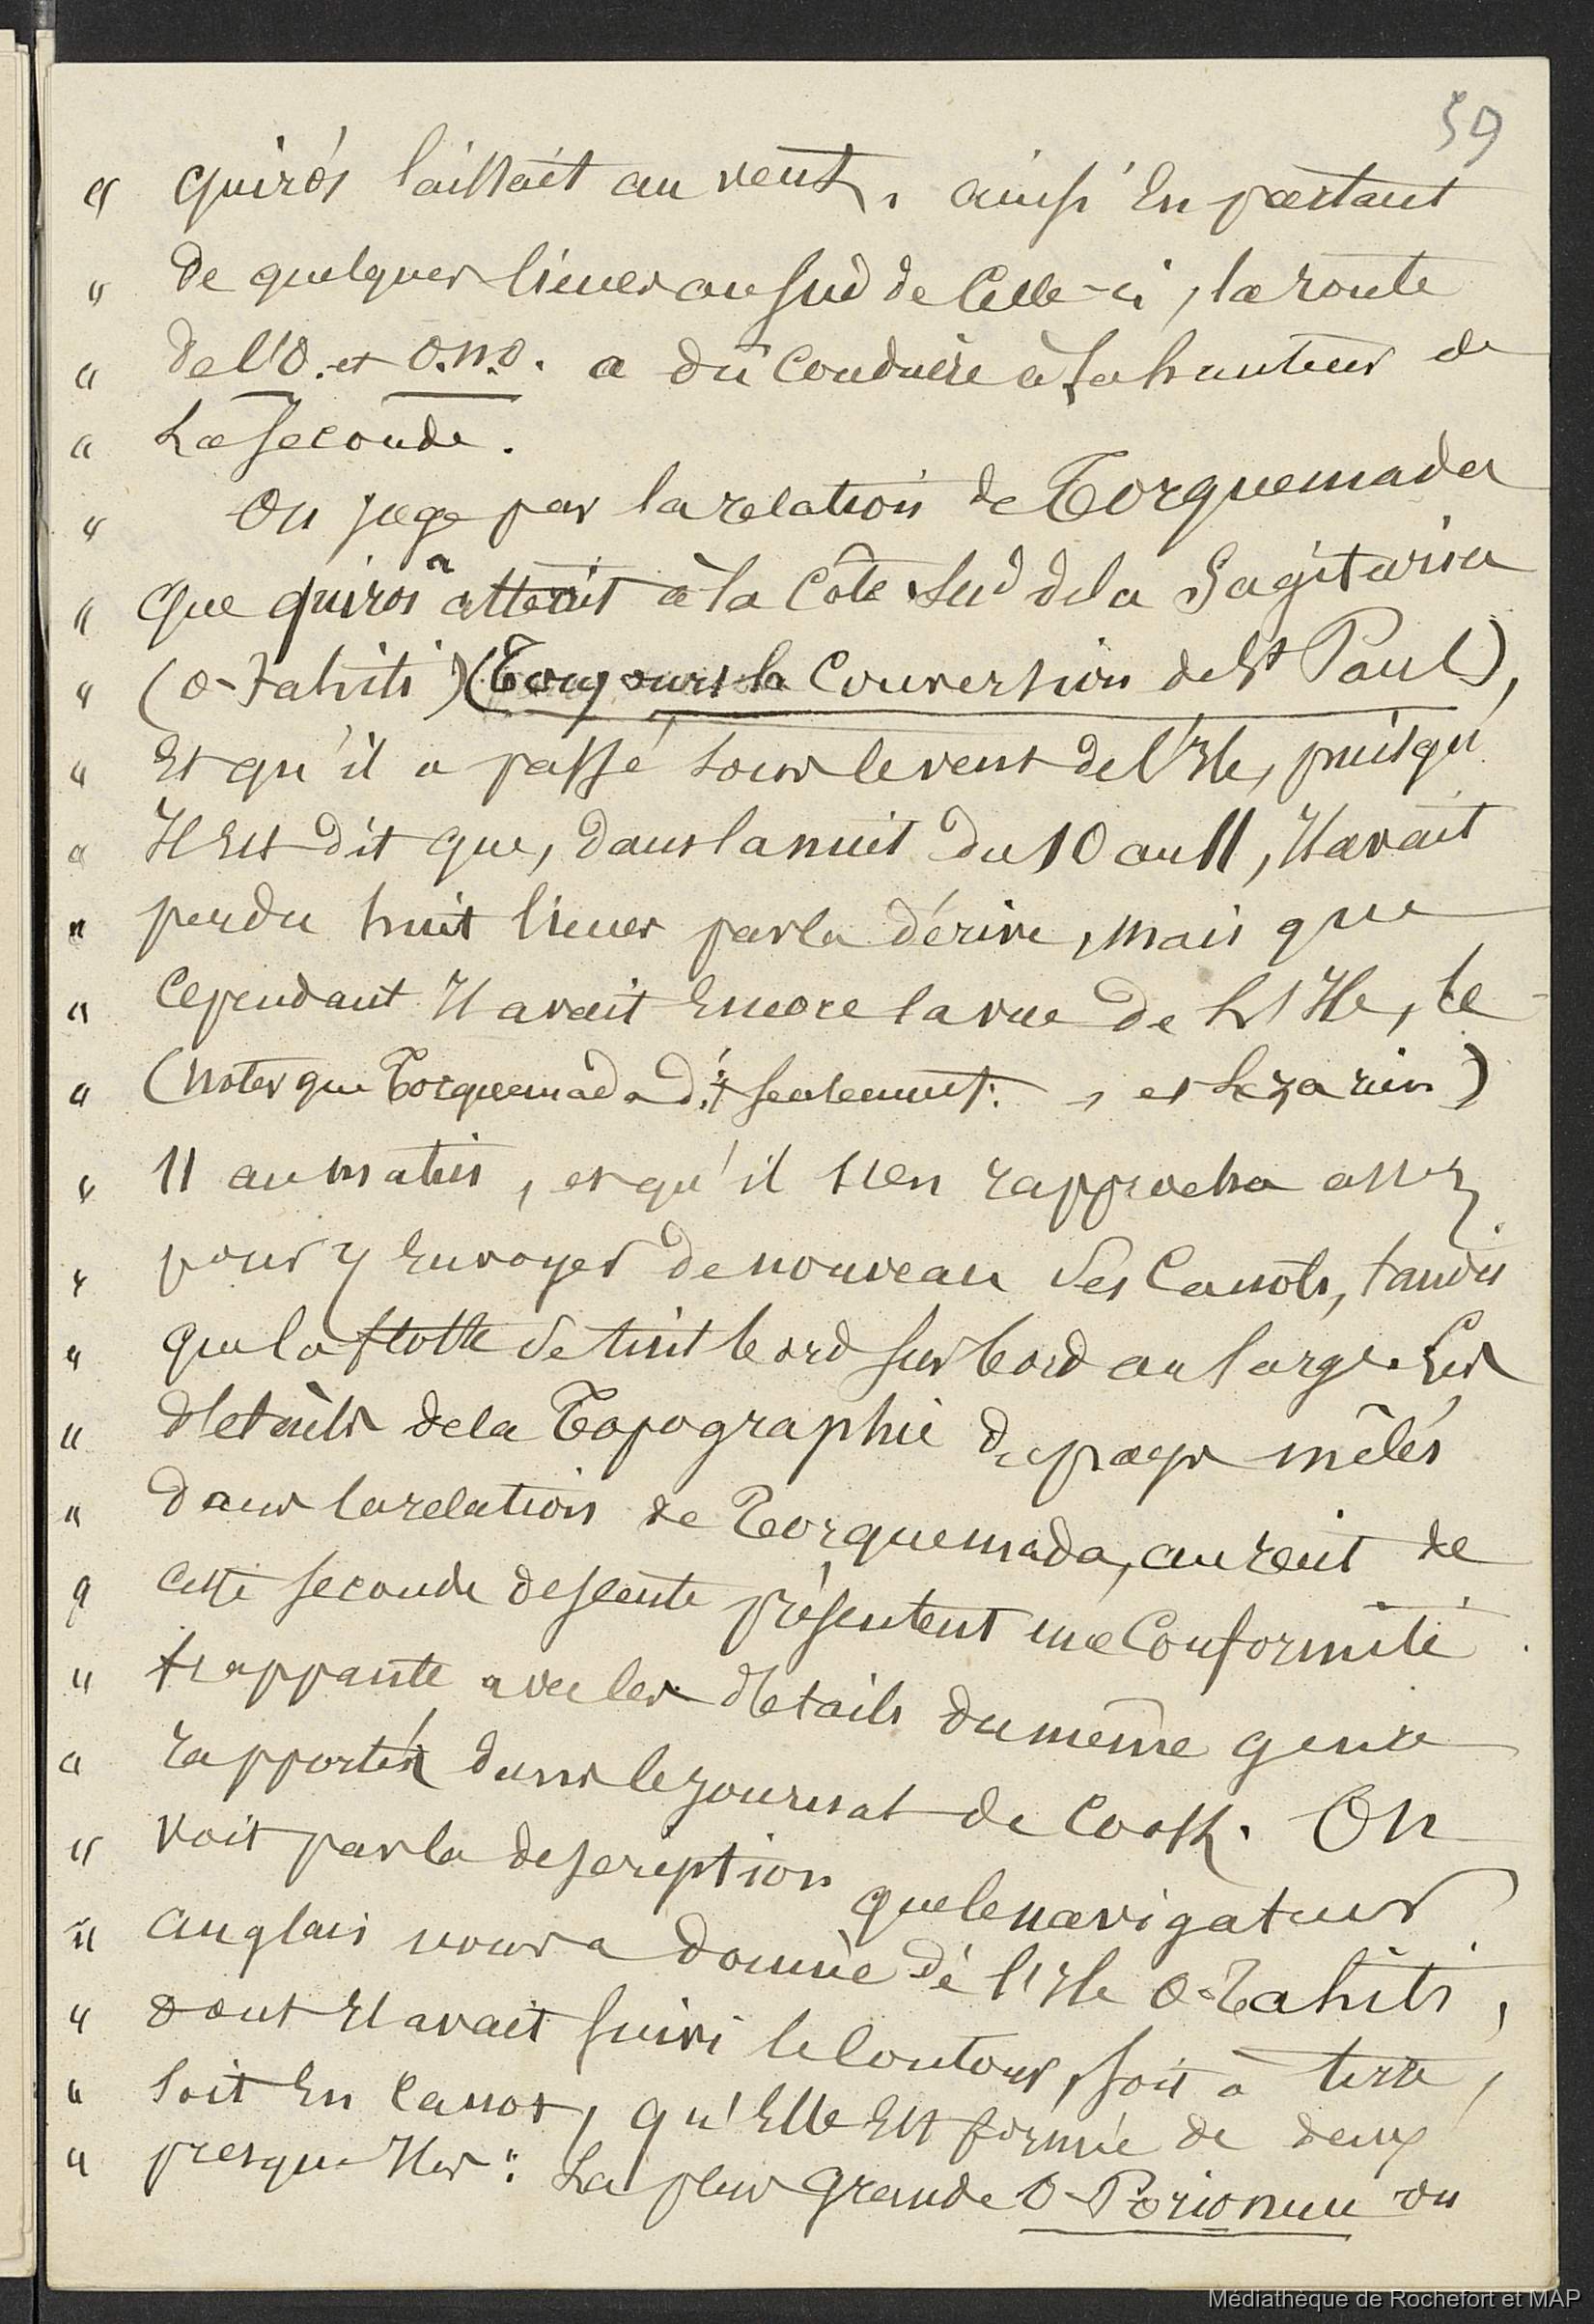 59
" quirós laissait au vent, ainsi En partant
" de quelques lieues au Sud de Celle-ci, la route
" de l'O. et O.N.O. a dû Conduire à la hauteur de
" La Seconde.
" On juge par la relation de Torquemada
" Que quiros a atterit à la Côte Sud de la Sagitaria
" (O-Tahiti) (Toujours la Conversion de St Paul),
" Et qu'il a passé sous le vent de l'Ile, puisqu'
" Il Est dit que, dans la nuit du 10 au 11, Il avait
" perdu huit lieues par la dérive, mais que
" Cependant Il avait Encore la vue de L'Ile, le
" (Noter que Torquemada dit seulement: , et Lezarin)
" 11 au matin, et qu'il s'en rapprocha assez
" pour y Envoyer de nouveau Ses Canots, tandis
" que la flotte se tint bord sur bord au large. Les
" détails de la Topographie du pays mêlés
" dans la relation de Torquemada, au récit de
" Cette seconde descente présentent une Conformité
" frappante avec les détails du même genre
" rapportés dans le journal de Cook. On
" Voit par la description que le navigateur
" anglais nous a donnée de l'Ile O-Tahiti,
" dont Il avait suivi le Contour, soit à terre,
" soit En Canot, qu'Elle Est formée de deux
" presqu'Iles: La plus grande O-Porionuu ou
Médiathèque de Rochefort et MAP